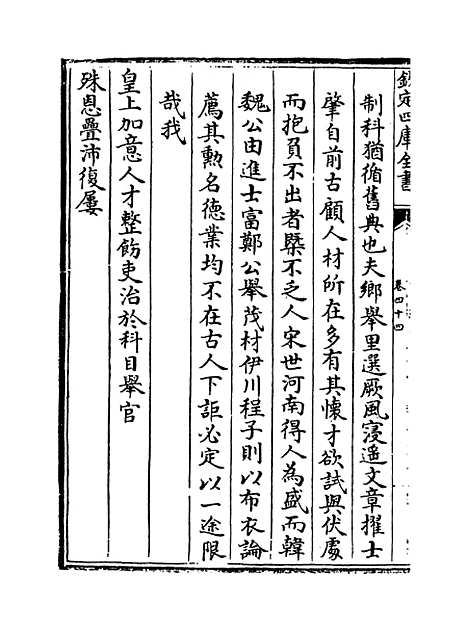 欽定四庫全書
卷四十四
制科猶循舊典也夫鄉舉里選厥風寖遥文章擢士
肇自前古顧人材所在多有其懷才欲試與伏處
而抱負不出者槩不乏人宋世河南得人為盛而韓
魏公由進士富鄭公舉茂材伊川程子則以布衣論
薦其勲名徳業均不在古人下詎必定以一途限
哉我
皇上加意人才整飭吏治於科目舉官
殊恩疊沛復屢